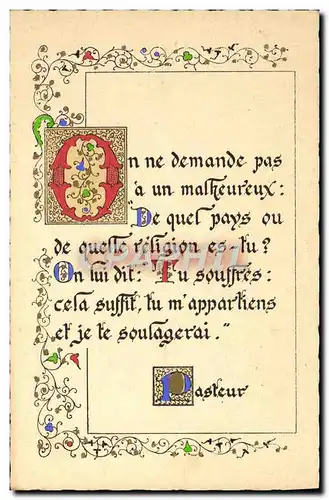 On ne demande pas
à un malheureux:
"De quel pays ou
de quelle religion es-tu?
On lui dit: Tu souffres:
cela suffit, tu m'appartiens
et je te soulagerai."
Pasteur